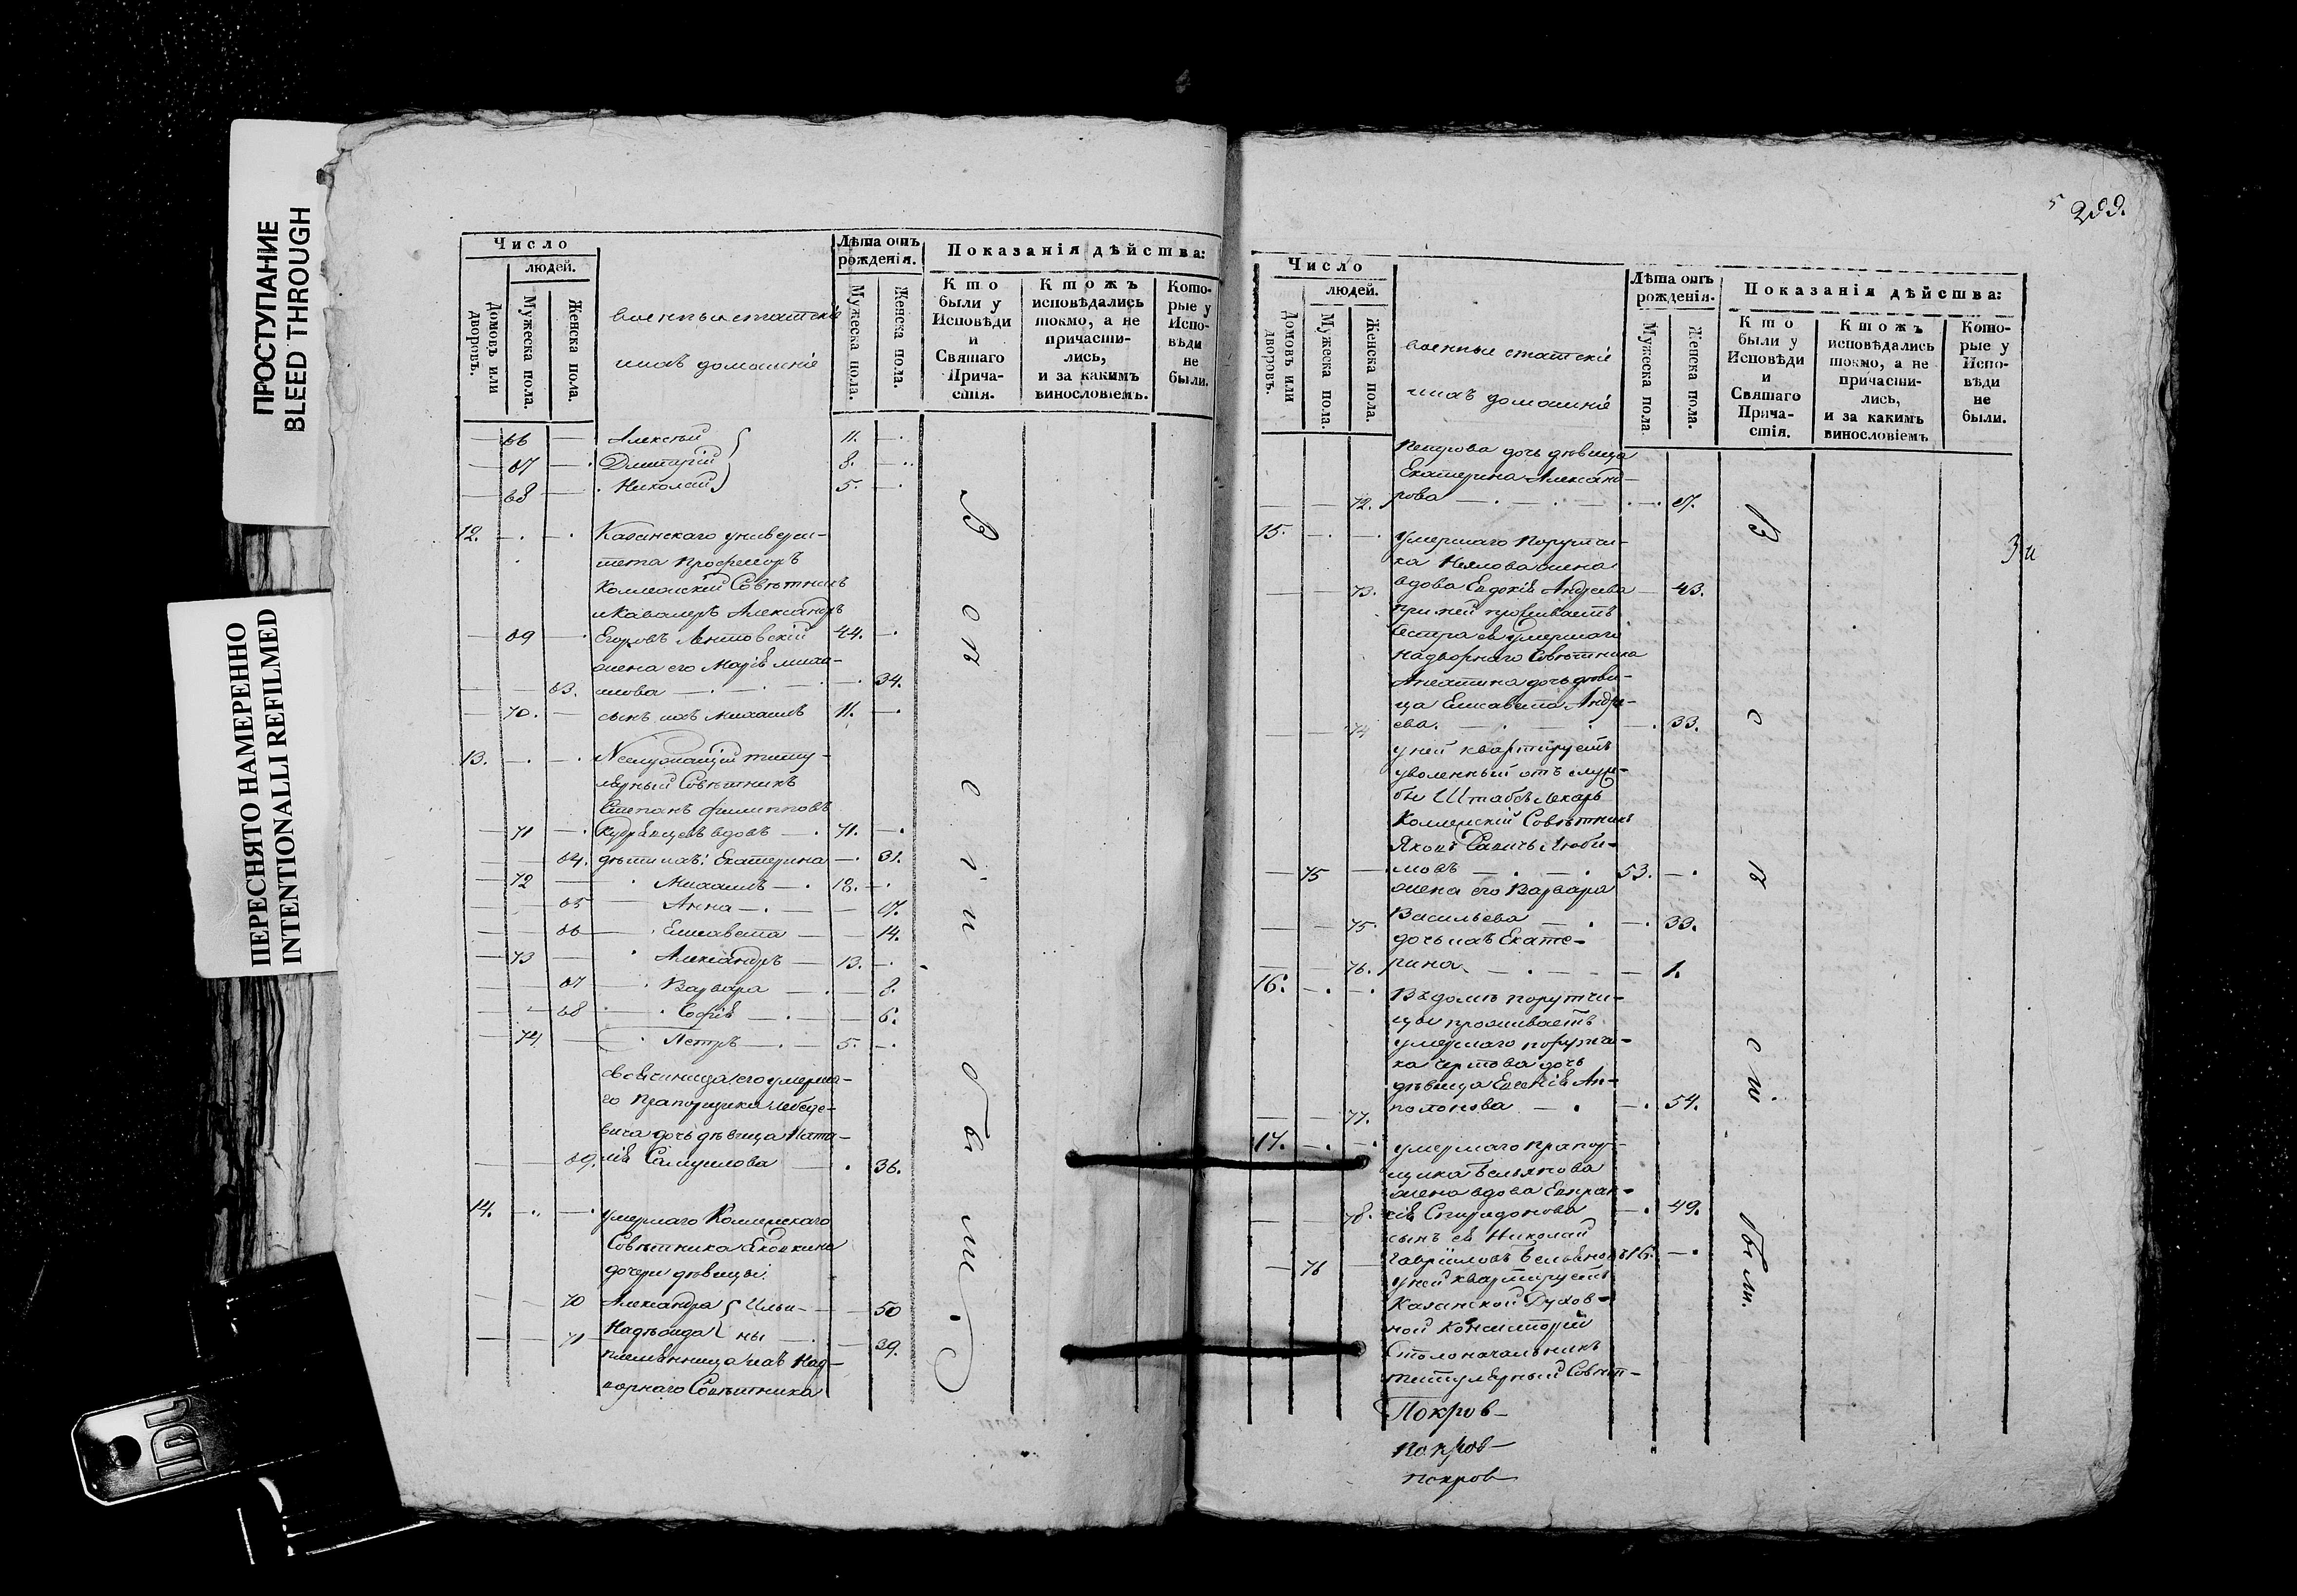 ПРОСТУПАНИЕ
BLEED THROUGH
ПЕРЕСНЯТО НАМЕРЕННО
INTENTIONALLI REFILMED
Число
людей.
Домовъ или дворовъ.
Мужеска пола.
Женска пола.
военныи статскіе
ихъ домашніе
Лѣта отъ рожденія.
Мужеска пола.
Женска пола.
Показанія дѣйства:
Кто были у Исповѣди и Святаго Прича-стія.
Ктожъ исповѣдались токмо, а не причасти-лись, и за какимъ винословіемъ.
Кото-рые у Испо-вѣди не были.
66 Алексѣй 11.
67 Дмитрій 8.
68 Николай 5.
12. Казанскаго универси-
тета Профессоръ
Коллежскій Совѣтникъ
и Кавалеръ Александръ
69 Егоровъ Лентовскій 44.
жена его Марія михаи-
63. лова 34.
70. сынъ ихъ Михаилъ 11.
13. Неслужащій титу-
лярный Совѣтникъ
Степанъ Филипповъ
71 Кудрявцевъ вдовъ 71.
64. дѣти ихъ: Екатерина 31.
72 Михаилъ 18.
65 Анна 17.
66 Елисавета 14.
73 Александръ 13.
67 Варвара 8.
68 Софія 6.
74 Петръ 5.
своячиница его умерша-
го Прапорщика Лебеде-
вича дочь дѣвица Ната-
69. лія Самуилова 36.
14. умершаго Коллежскаго
Совѣтника Яковкина
дочери дѣвицы.
70 Александра Ильи- 50
71 Надѣжда ны 39.
племянница ихъ Над-
ворнаго Совѣтника
Вси были
5 299.
Число
людей.
Домовъ или дворовъ.
Мужеска пола.
Женска пола.
военные статскіе
ихъ домашніе
Лѣта отъ рожденія.
Мужеска пола.
Женска пола.
Показанія дѣйства:
Кто были у Исповѣди и Святаго Прича-стія.
Ктожъ исповѣдались токмо, а не причасти-лись, и за какимъ винословіемъ
Кото-рые у Испо-вѣди не были.
Петрова дочь дѣвица
Екатерина Александ-
72. рова 17.
15. умершаго Поручи-
ка жена
73. вдова Евдокія Андреева 43.
при ней проживаетъ
сестра ея умершаго
надворнаго Совѣтника
дочь дѣви-
ца Елисавета Андре-
74 ева. 33.
у ней квартируетъ
уволенный отъ служ-
бы Штабъ Лекарь
Коллежскій Совѣтникъ
Яковъ Люби-
75 мовъ 53.
жена его Варвара
75. Васильева 33.
дочь ихъ Екате-
76. рина 1.
16. Въ домѣ поручи-
цы проживаетъ
умершаго поручи-
ка Чертова дочь
дѣвица Евгенія Ап-
77. полонова 54.
17. умершаго Прапор-
щика Бельянова
жена вдова Евпрак-
78. сія Спиридонова 49.
сынъ ея Николай
76 Гавриловъ Бельяновъ 16.
у ней квартируетъ
Казанской Духов-
ной Консисторіи
Столоначальникъ
титулярный Совѣт-
Покров-
Покров-
покров